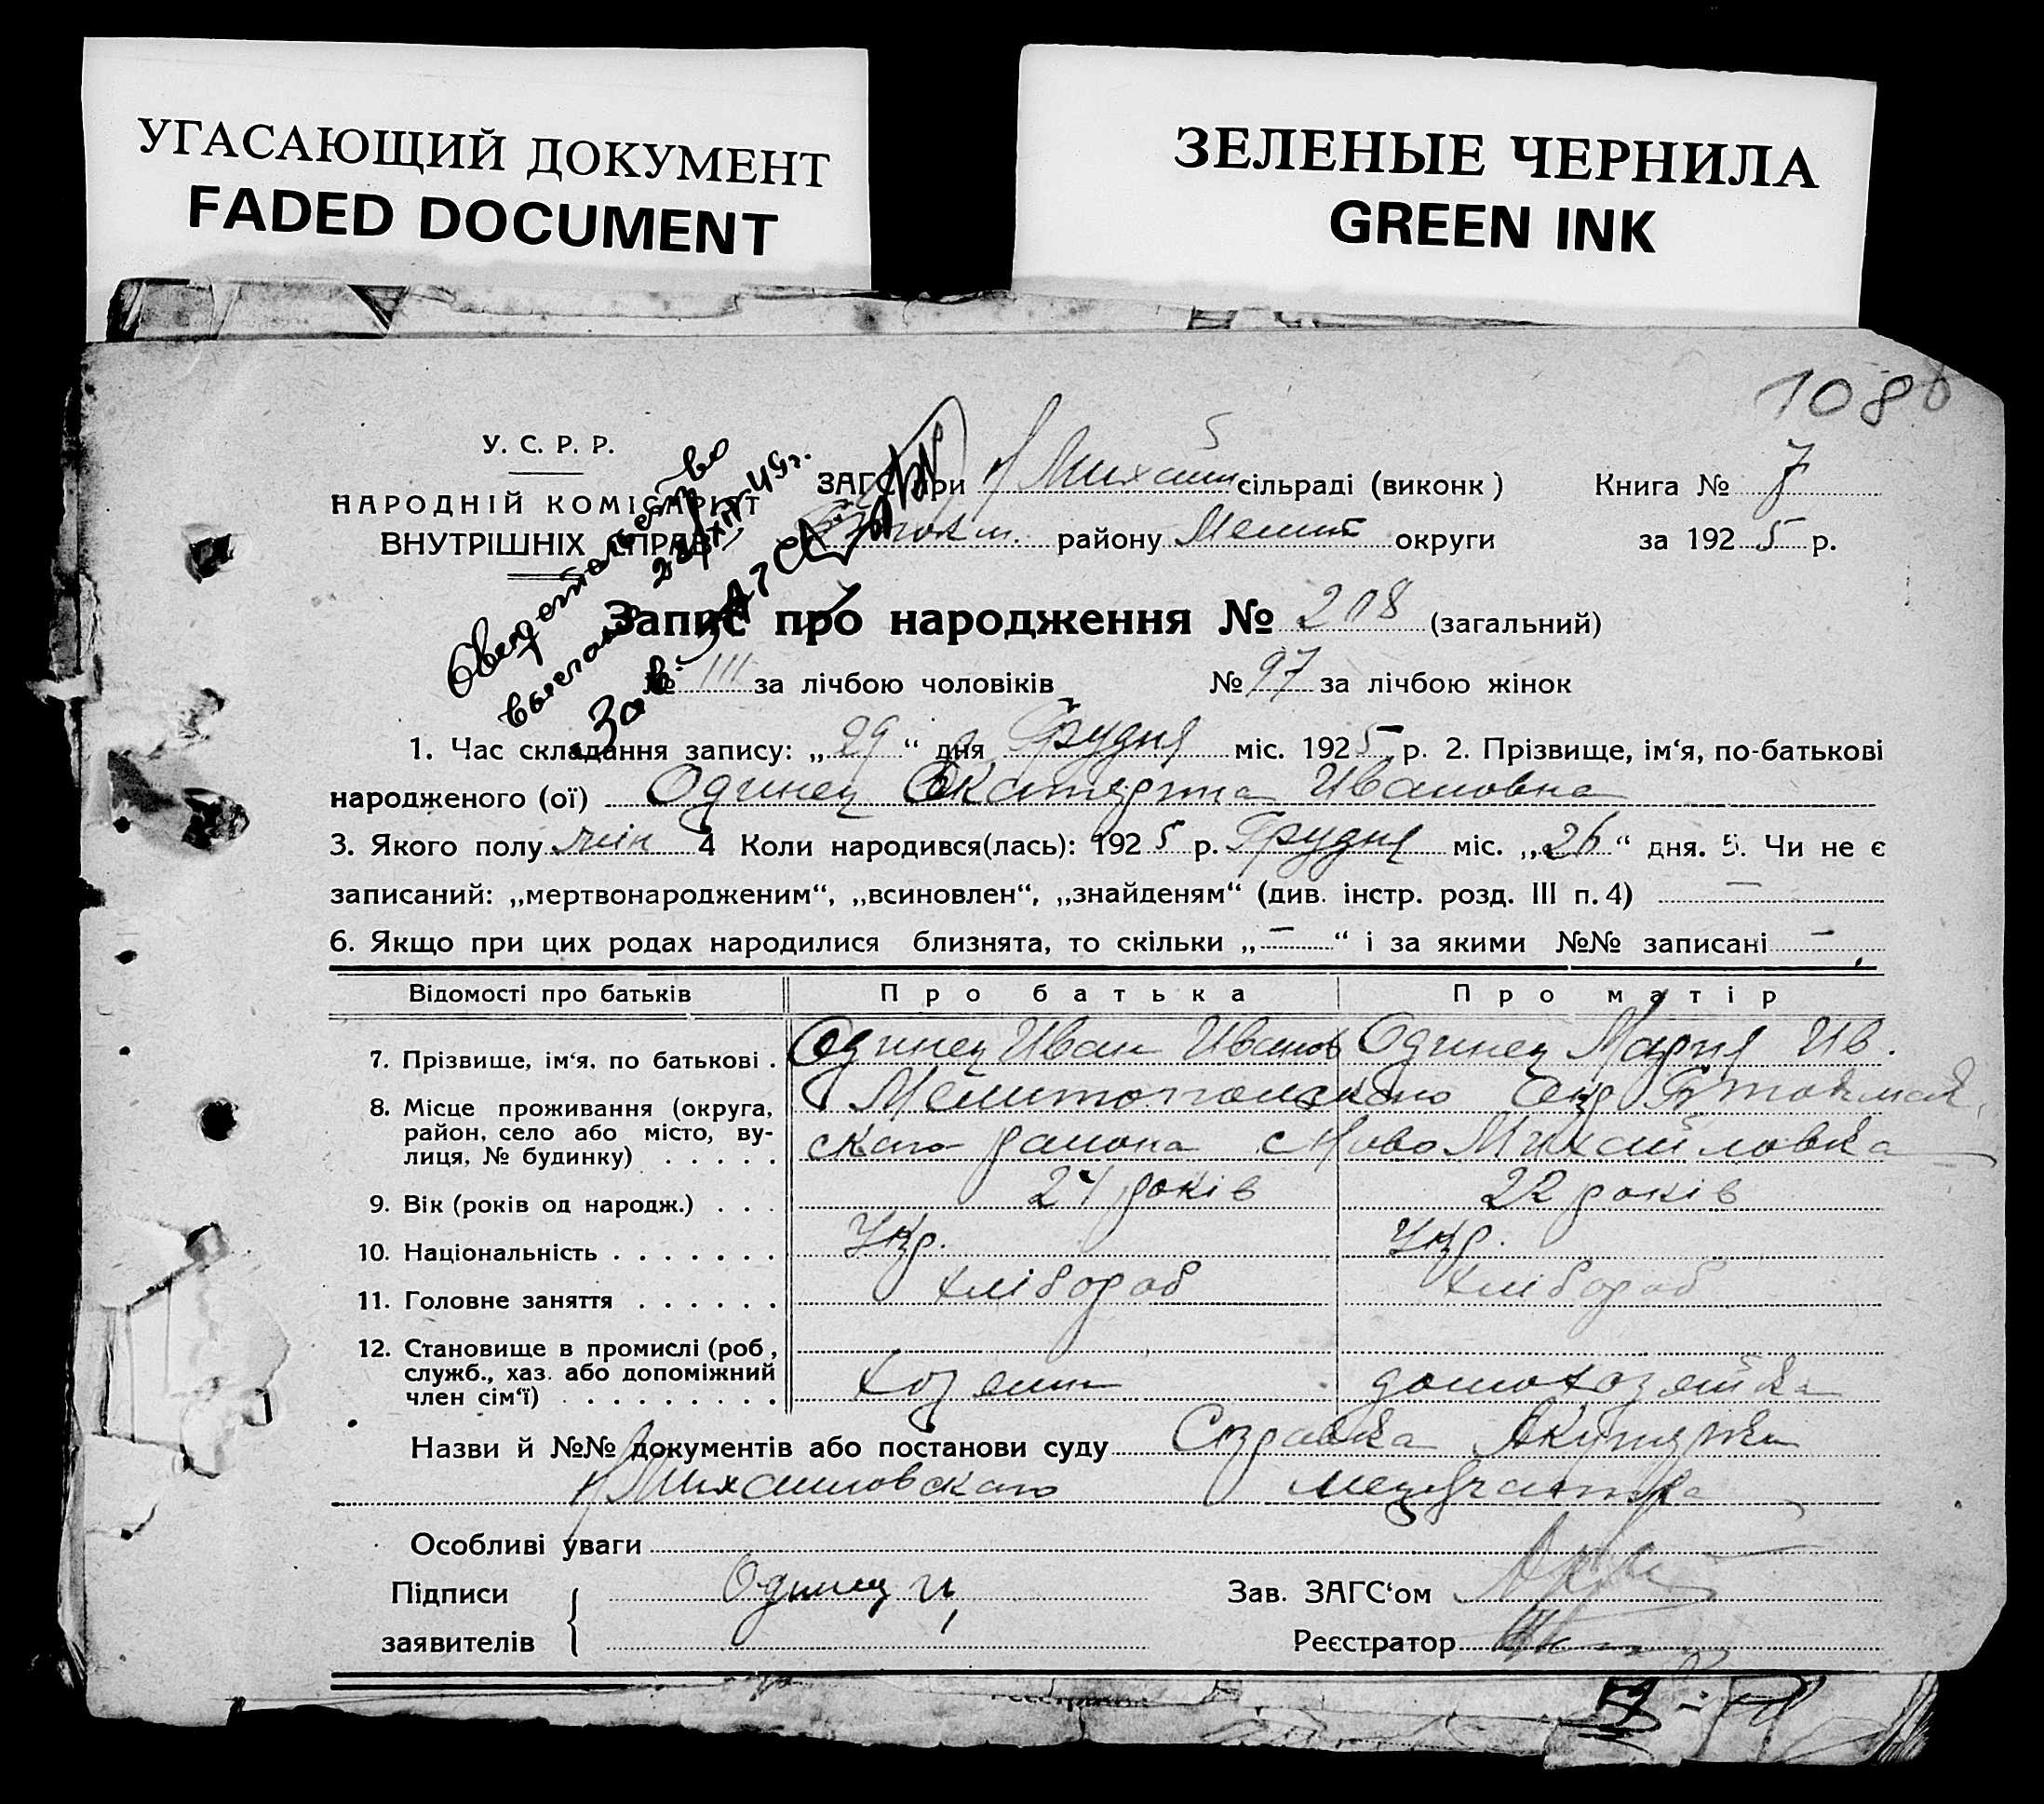 УГАСАЮЩИЙ ДОКУМЕНТ
FADED DOCUMENT
ЗЕЛЕНЫЕ ЧЕРНИЛА
GREEN INK
1086
У. С. Р. Р.
НАРОДНІЙ КОМІСАРІЯТ
ВНУТРІШНІХ СПРАВ
Свидетельство
выслано
Зав.
ЗАГС при Н Михайл сільраді (виконк) Книга № 7
Б Токм. району Мелит округи за 1925 р.
Запис про народження № 208 (загальний)
№ 111 за лічбою чоловіків № 97 за лічбою жінок
1. Час складання запису: „29“ дня Грудня міс. 1925 р. 2. Прізвище, ім‘я, по-батькові
народженого (ої) Одинец Екатерина Ивановна
3. Якого полу жін 4 Коли народився(лась): 1925 р. Грудня міс. „26“ дня. 5. Чи не є
записаний: „мертвонародженим“, „всиновлен“, „знайденям“ (див. інстр. розд. III п. 4) —
6. Якщо при цих родах народилися близнята, то скільки „—“ і за якими №№ записані —
Відомості про батьків Про батька Про матір
7. Прізвище, ім‘я, по батькові . Одинец Иван Иванов Одинец Мария Ив.
8. Місце проживання (округа, Мелитопольского Окр Б Токмак
район, село або місто, ву-
лиця, № будинку) . . . . . ского района с Ново Михайловка
9. Вік (років од народж.) . . . 24 років 22 років
10. Національність . . . . . . . Укр. Укр.
11. Головне заняття . . . . . . хлібороб хлібороб
12. Становище в промислі (роб,
служб., хаз. або допоміжний
член сім‘ї) . . . . . . . . . хозяин домохозяйка
Назви й №№ документів або постанови суду Справка Акушерки
Н Михайловского медучастка
Особливі уваги
Підписи Одинец И, Зав. ЗАГС‘ом
заявителів Реєстратор